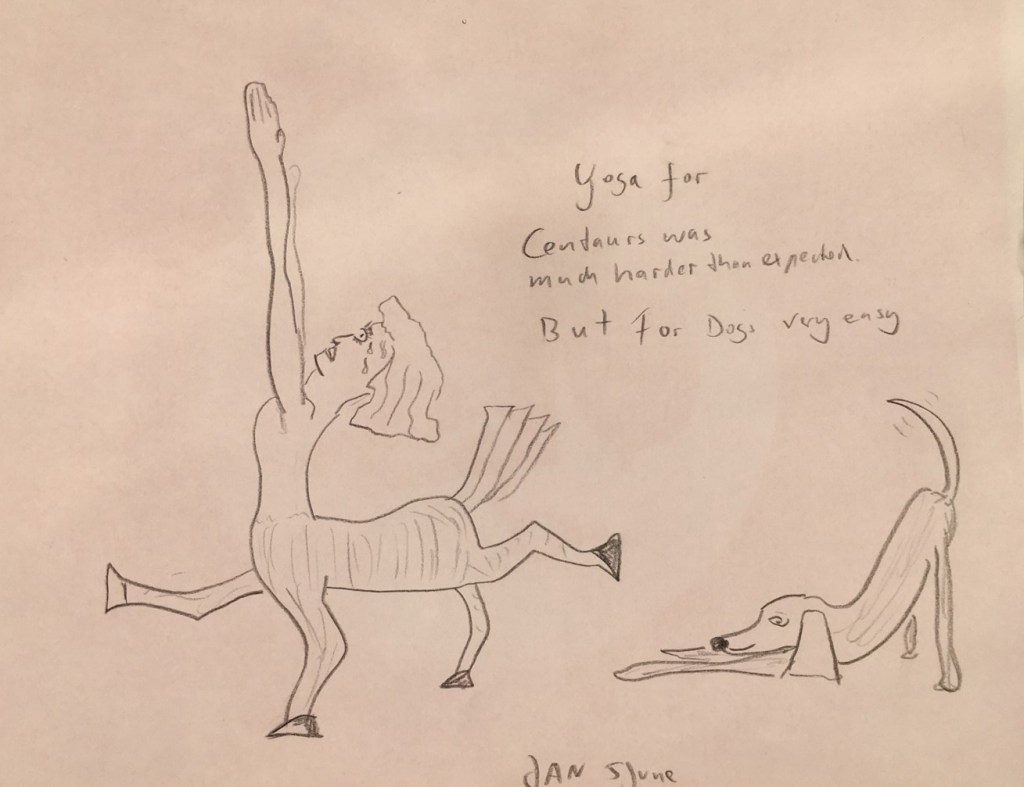 Yoga for
Centaurs was
much harder than expected.
But for Dogs very easy
JAN 5June